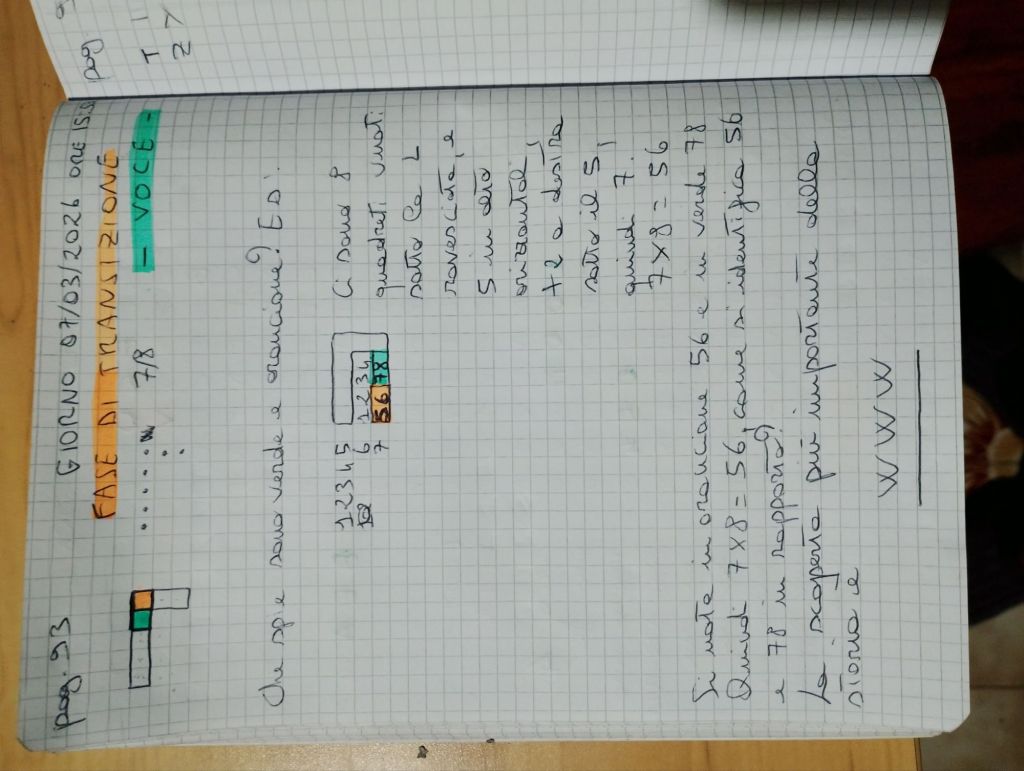 pag. 93
GIORNO 07/03/2026 ORE 15:
FASE DI TRANSIZIONE
7/8 - VOCE -
Due spie sono verde e arancione? ED:
1 2 3 4 5
6 1 2 3 4
7 56 78
Ci sono 8
quadrati vuoti
sotto la L
rovesciata, e
5 in alto
orizzontali,
+2 a destra
sotto il 5,
quindi 7.
7x8 = 56
Si nota in arancione 56 e in verde 78
Quindi 7x8 = 56, come si identifica 56
e 78 in rapporto?
La scoperta più importante della
storia è
W W W
pag
T
Z